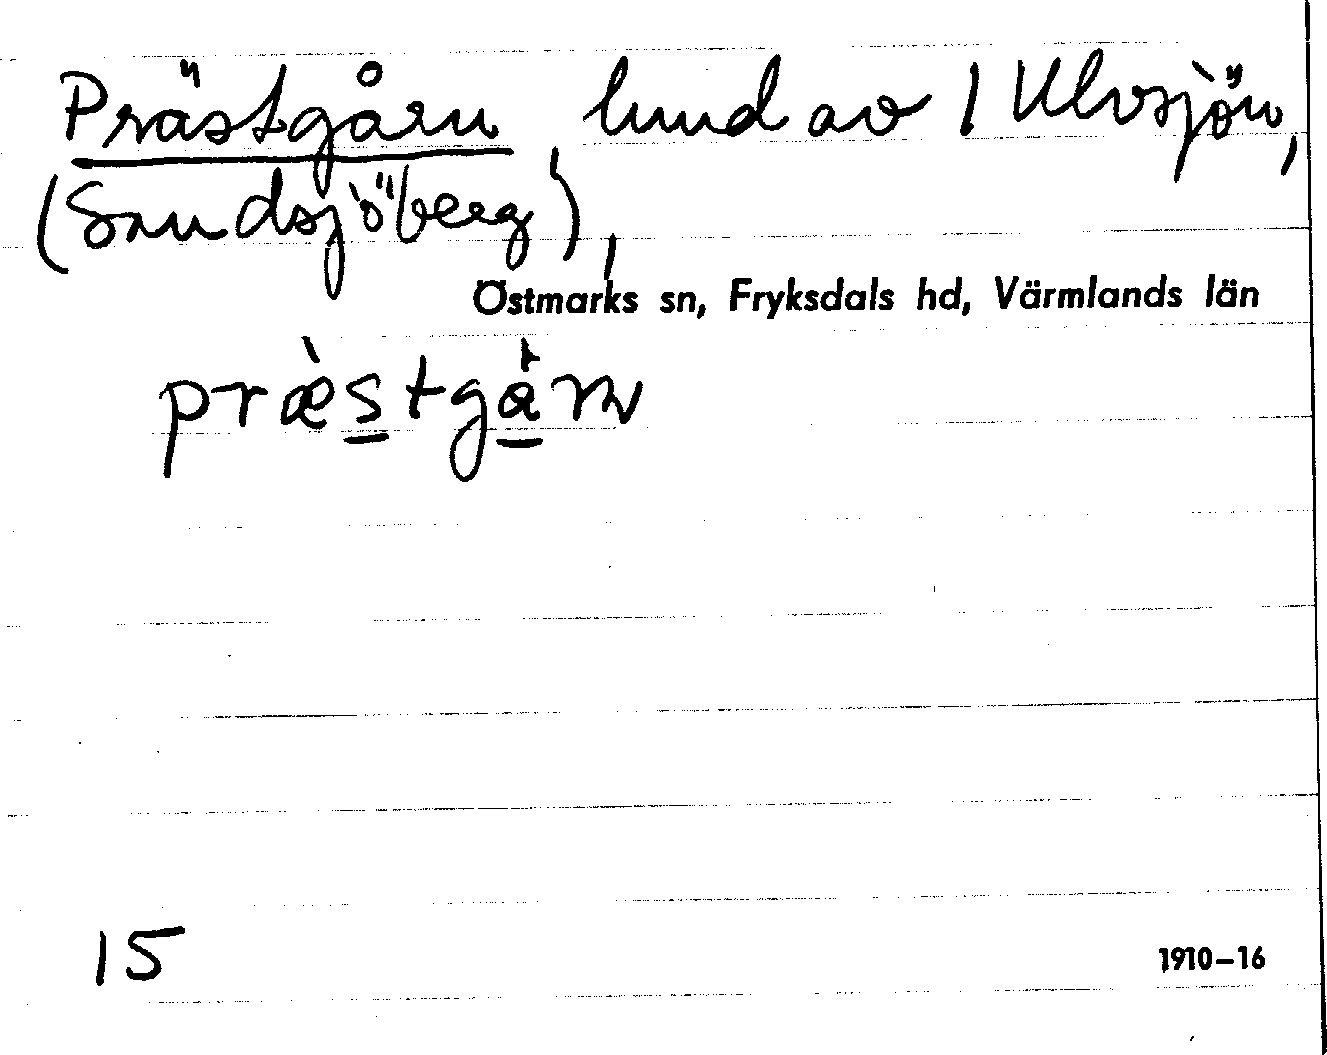 Prästgårn, lund av 1 Ulvsjön,
(Sandsjöberg),
Östmarks sn, Fryksdals hd, Värmlands län
præ̀stgȧrn
15
1910–16